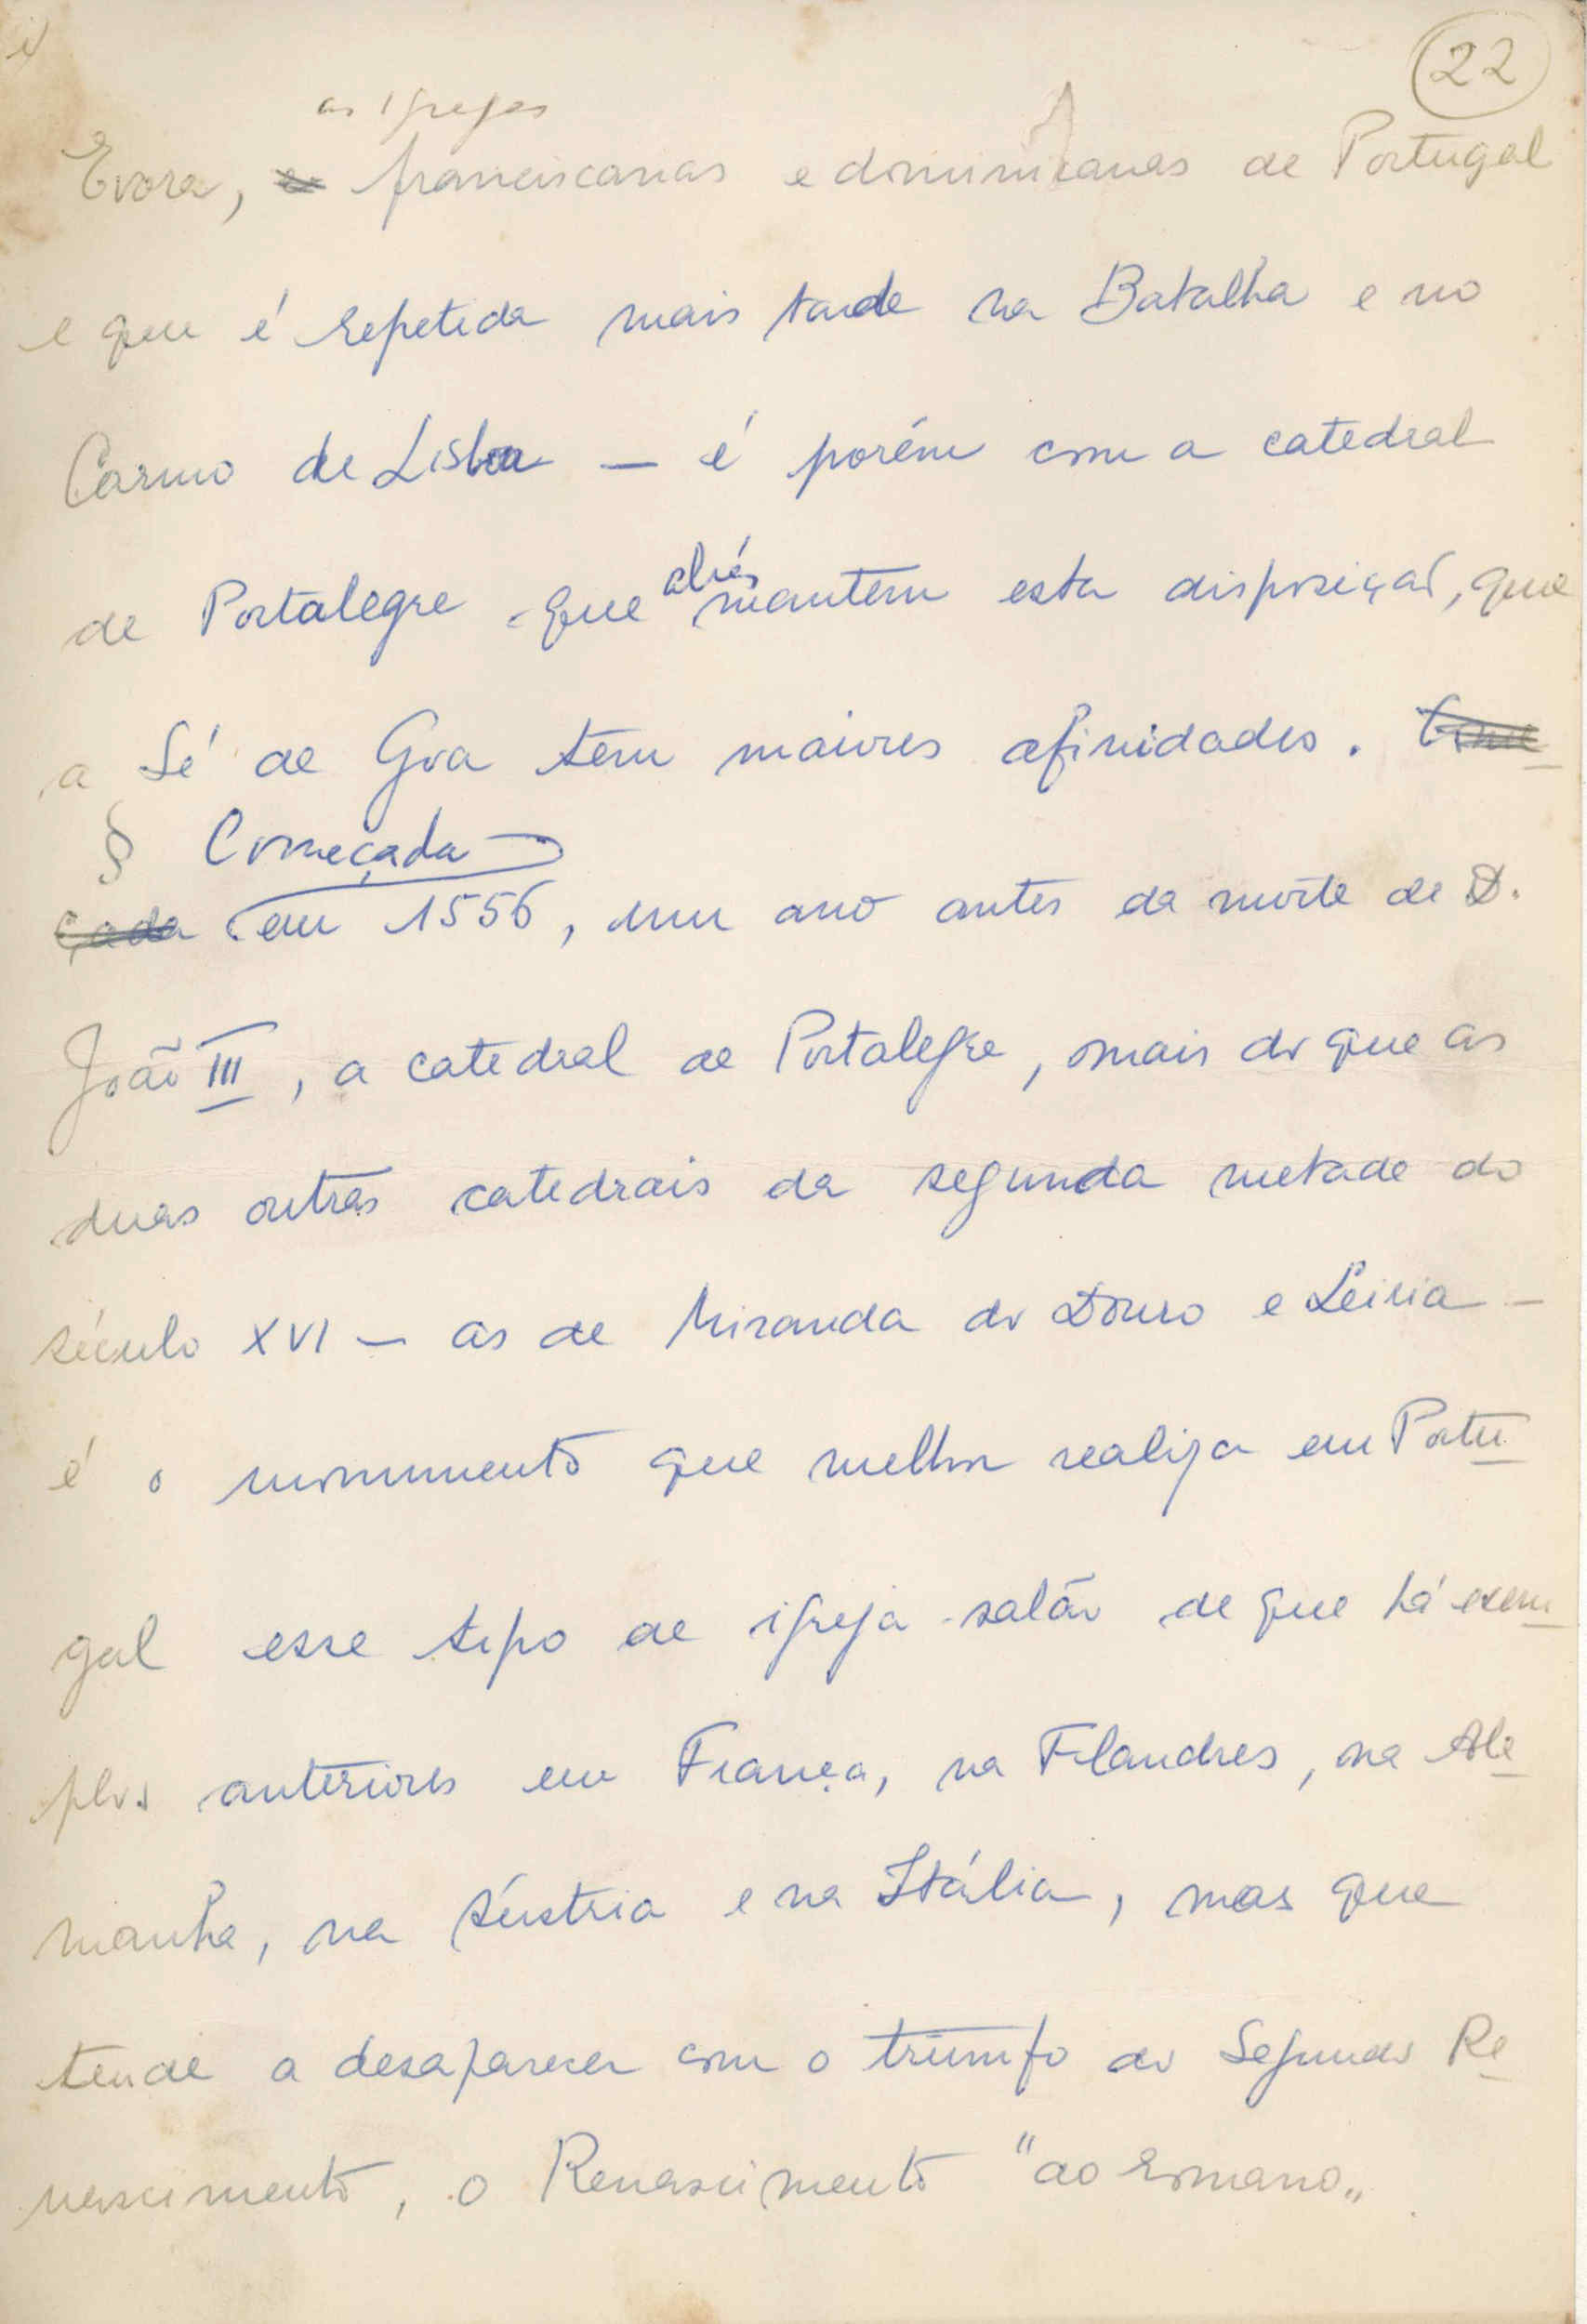 22
as igrejas
Evora, as franciscanas e dominicanas de Portugal
e que é repetida mais tarde na Batalha e no
Carmo de Lisboa — é porém com a catedral
aliás
de Portalegre que mantem esta disposição, que
a Sé de Goa tem maiores afinidades. Come
§ Começada
çada em 1556, um ano antes da morte de D.
João III, a catedral de Portalegre, mais do que as
duas outras catedrais da segunda metade do
século XVI — as de Miranda do Douro e Leiria —
é o monumento que melhor realiza em Portu
gal esse tipo de igreja-salão de que há exem
plos anteriores em França, na Flandres, na Ale
manha, na Áustria e na Itália, mas que
tende a desaparecer com o triunfo do Segundo Re
nascimento, o Renascimento "ao romano"